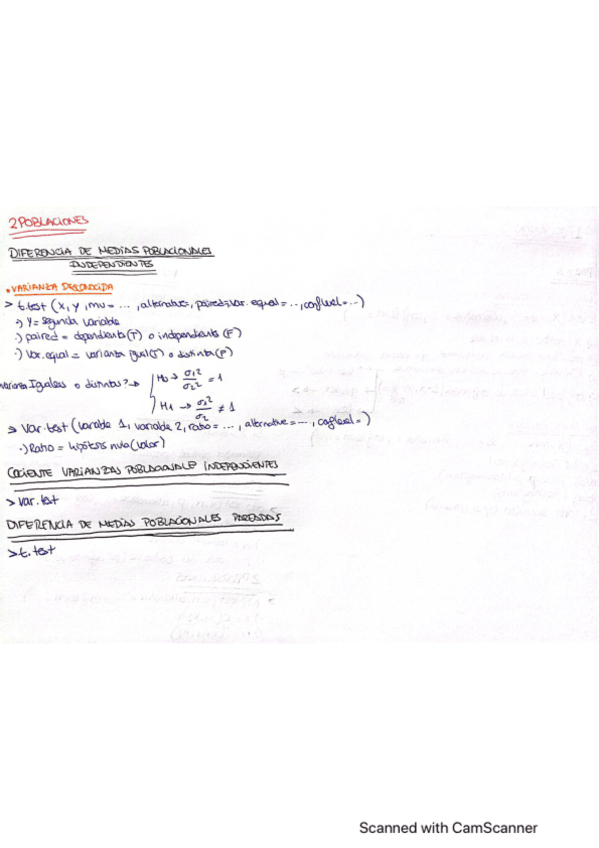 2 POBLACIONES
DIFERENCIA DE MEDIAS POBLACIONALES
INDEPENDIENTES
• VARIANZA DESCONOCIDA
> t.test (x, y, mu = ..., alternative, paired=, var.equal = .., conf level = ...)
·) Y = segunda variable
·) paired = dependiente (T) o independiente (F)
·) Var.equal = varianza igual (T) o distinta (F)
Varianza Iguales o distintas? → H0 → σ1² / σ2² = 1
H1 → σ1² / σ2 ≠ 1
> Var.test (variable 1, variable 2, ratio = ..., alternative = ..., conf level = )
·) Ratio = hipótesis nula (valor)
COCIENTE VARIANZAS POBLACIONALES INDEPENDIENTES
> var.test
DIFERENCIA DE MEDIAS POBLACIONALES PAREADAS
> t.test
Scanned with CamScanner